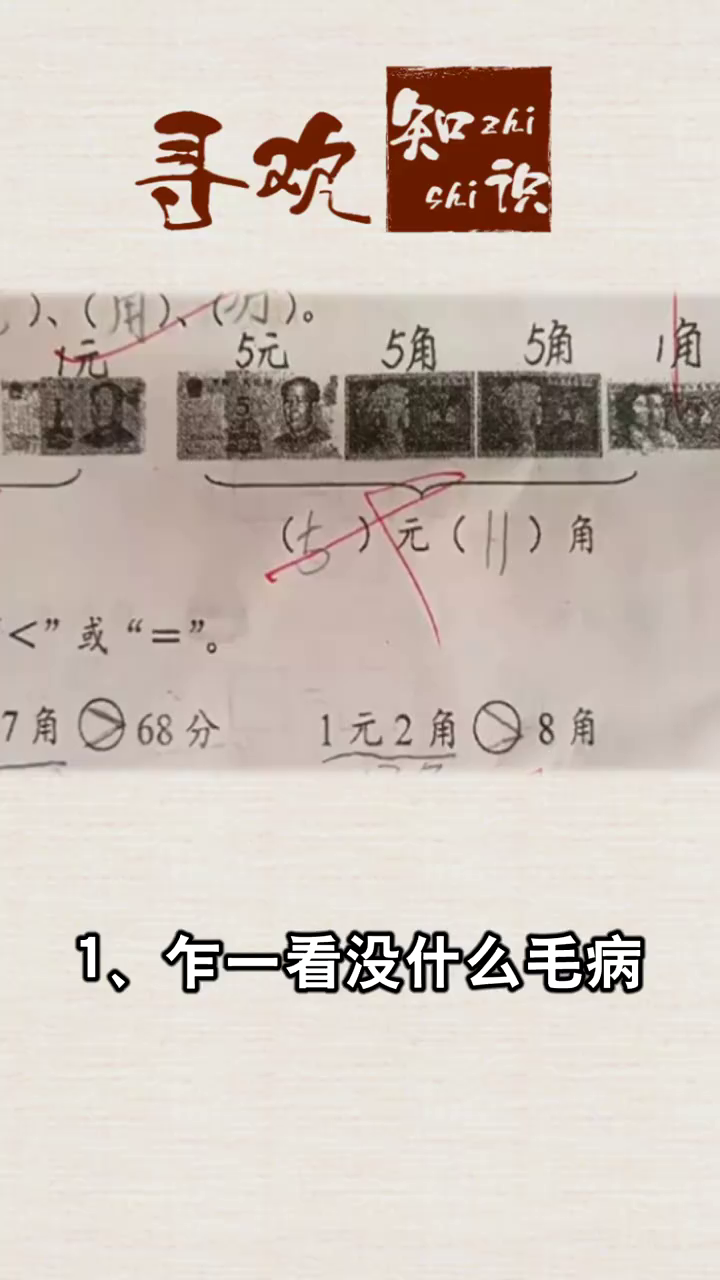 寻欢
知zhi
shi识
)、(角)、(分)。
1元 5元 5角 5角 1角
5
( ) 元 ( 11 ) 角
<”或“=”。
7角 > 68分 1元2角 > 8角
1、乍一看没什么毛病